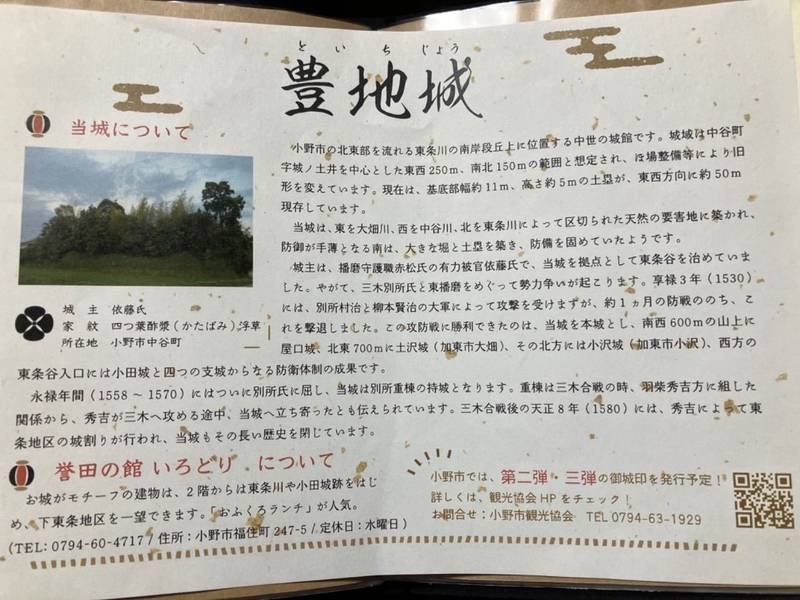 といちじょう
豊地城
当城について
小野市の北東部を流れる東条川の南岸段丘上に位置する中世の城館です。城域は中谷町
字城ノ土井を中心とした東西250m、南北150mの範囲と想定され、ほ場整備等により旧
形を変えています。現在は、基底部幅約11m、高さ約5mの土塁が、東西方向に約50m
現存しています。
当城は、東を大畑川、西を中谷川、北を東条川によって区切られた天然の要害地に築かれ、
防御が手薄となる南は、大きな堀と土塁を築き、防備を固めていたようです。
城主は、播磨守護職赤松氏の有力被官依藤氏で、当城を拠点として東条谷を治めていま
した。やがて、三木別所氏と東播磨をめぐって勢力争いが起こります。享禄3年(1530)
には、別所村治と柳本賢治の大軍によって攻撃を受けますが、約1ヵ月の防戦ののち、こ
れを撃退しました。この攻防戦に勝利できたのは、当城を本城とし、南西600mの山上に
屋口城、北東700mに土沢城(加東市大畑)、その北方には小沢城(加東市小沢)、西方の
城 主 依藤氏
家 紋 四つ葉酢漿(かたばみ)浮草
所在地 小野市中谷町
東条谷入口には小田城と四つの支城からなる防衛体制の成果です。
永禄年間(1558~1570)にはついに別所氏に屈し、当城は別所重棟の持城となります。重棟は三木合戦の時、羽柴秀吉方に組した
関係から、秀吉が三木へ攻める途中、当城へ立ち寄ったとも伝えられています。三木合戦後の天正8年(1580)には、秀吉によって東
条地区の城割りが行われ、当城もその長い歴史を閉じています。
誉田の館 いろどり について
お城がモチーフの建物は、2階からは東条川や小田城跡をはじ
め、下東条地区を一望できます。「おふくろランチ」が人気。
(TEL: 0794-60-4717 / 住所:小野市福住町 247-5 / 定休日:水曜日)
小野市では、第二弾・三弾の御城印を発行予定!
詳しくは、観光協会HPをチェック!
お問合せ:小野市観光協会 TEL 0794-63-1929